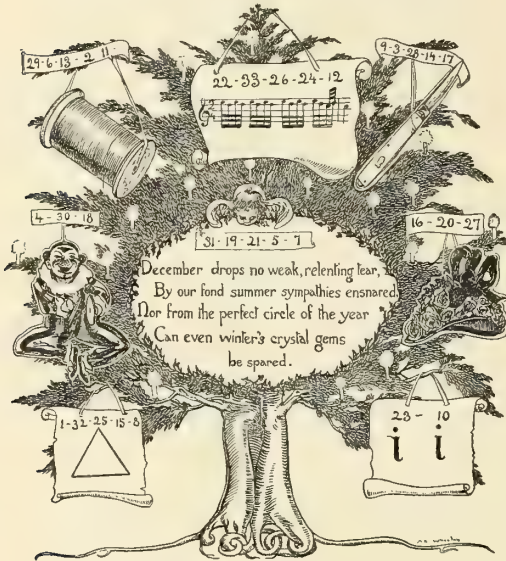 29-6-13-2-11
22-33-26-24-12
9-3-28-14-17
4-30-18
31-19-21-5-7
16-20-27
December drops no weak, relenting tear,
By our fond summer sympathies ensnared,
Nor from the perfect circle of the year
Can even winter's crystal gems
be spared.
1-32-25-15-8
23- 10
i i